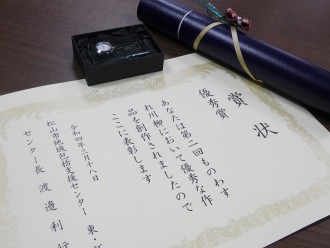 賞状
優秀賞
あなたは第二回ものわす
れ川柳において優秀な作
品を創作されましたので
ここに表彰します
令和四年三月十八日
松山市地域包括支援センター 東・
センター長 渡邊利